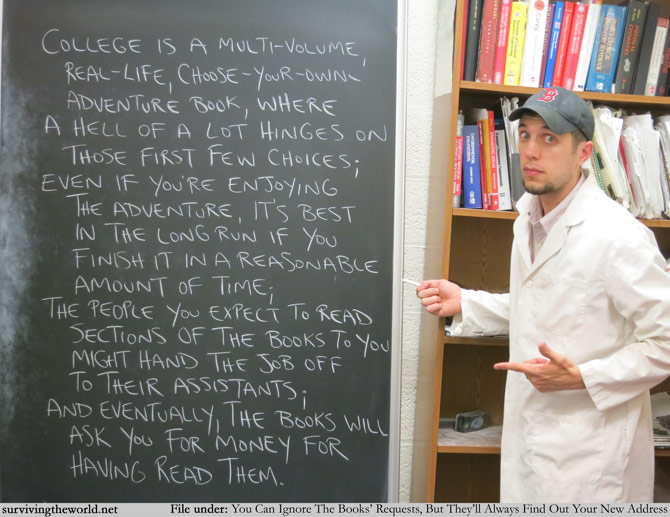 COLLEGE IS A MULTI-VOLUME,
REAL-LIFE, CHOOSE-YOUR-OWN-
ADVENTURE BOOK, WHERE
A HELL OF A LOT HINGES ON
THOSE FIRST FEW CHOICES;
EVEN IF YOU'RE ENJOYING
THE ADVENTURE, IT'S BEST
IN THE LONG RUN IF YOU
FINISH IT IN A REASONABLE
AMOUNT OF TIME;
THE PEOPLE YOU EXPECT TO READ
SECTIONS OF THE BOOKS TO YOU
MIGHT HAND THE JOB OFF
TO THEIR ASSISTANTS;
AND EVENTUALLY, THE BOOKS WILL
ASK YOU FOR MONEY FOR
HAVING READ THEM.
B
Carey
survivingtheworld.net File under: You Can Ignore The Books' Requests, But They'll Always Find Out Your New Address